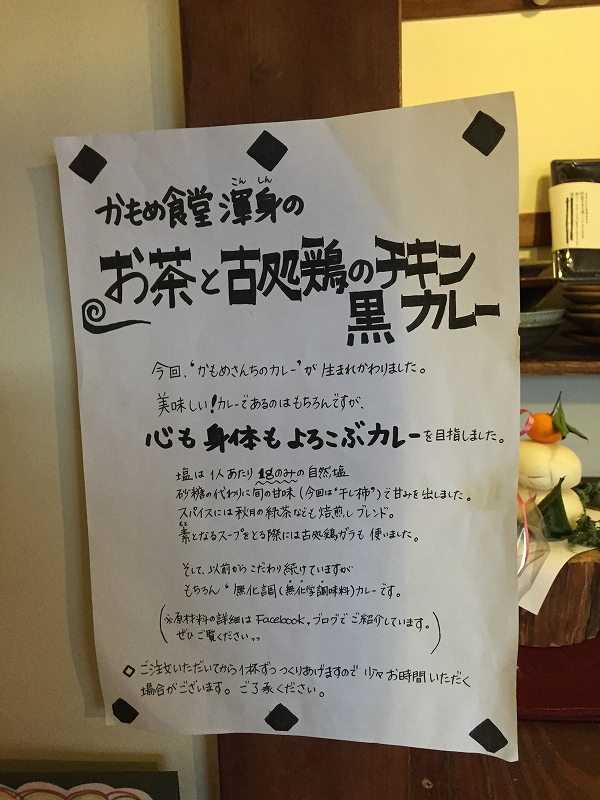 かもめ食堂渾身の
こんしん
お茶と古処鶏のチキン
黒カレー
今回、“かもめさんちのカレー”が生まれかわりました。
美味しい!カレーであるのはもちろんですが、
心も身体もよろこぶカレーを目指しました。
塩は1人あたり1gのみの自然塩
砂糖の代わりに旬の甘味(今回は“干し柿”)で甘みを出しました。
スパイスには秋月の緑茶なども焙煎しブレンド。
素となるスープをとる際には古処鶏ガラも使いました。
もと
そして、以前からこだわり続けていますが
もちろん“無化調(無化学調味料)カレーです。
(※原材料の詳細はFacebook,ブログでご紹介しています。
ぜひご覧ください。)
◇ご注文いただいてから1杯ずつつくりあげますので少々お時間いただく
場合がございます。ご了承ください。